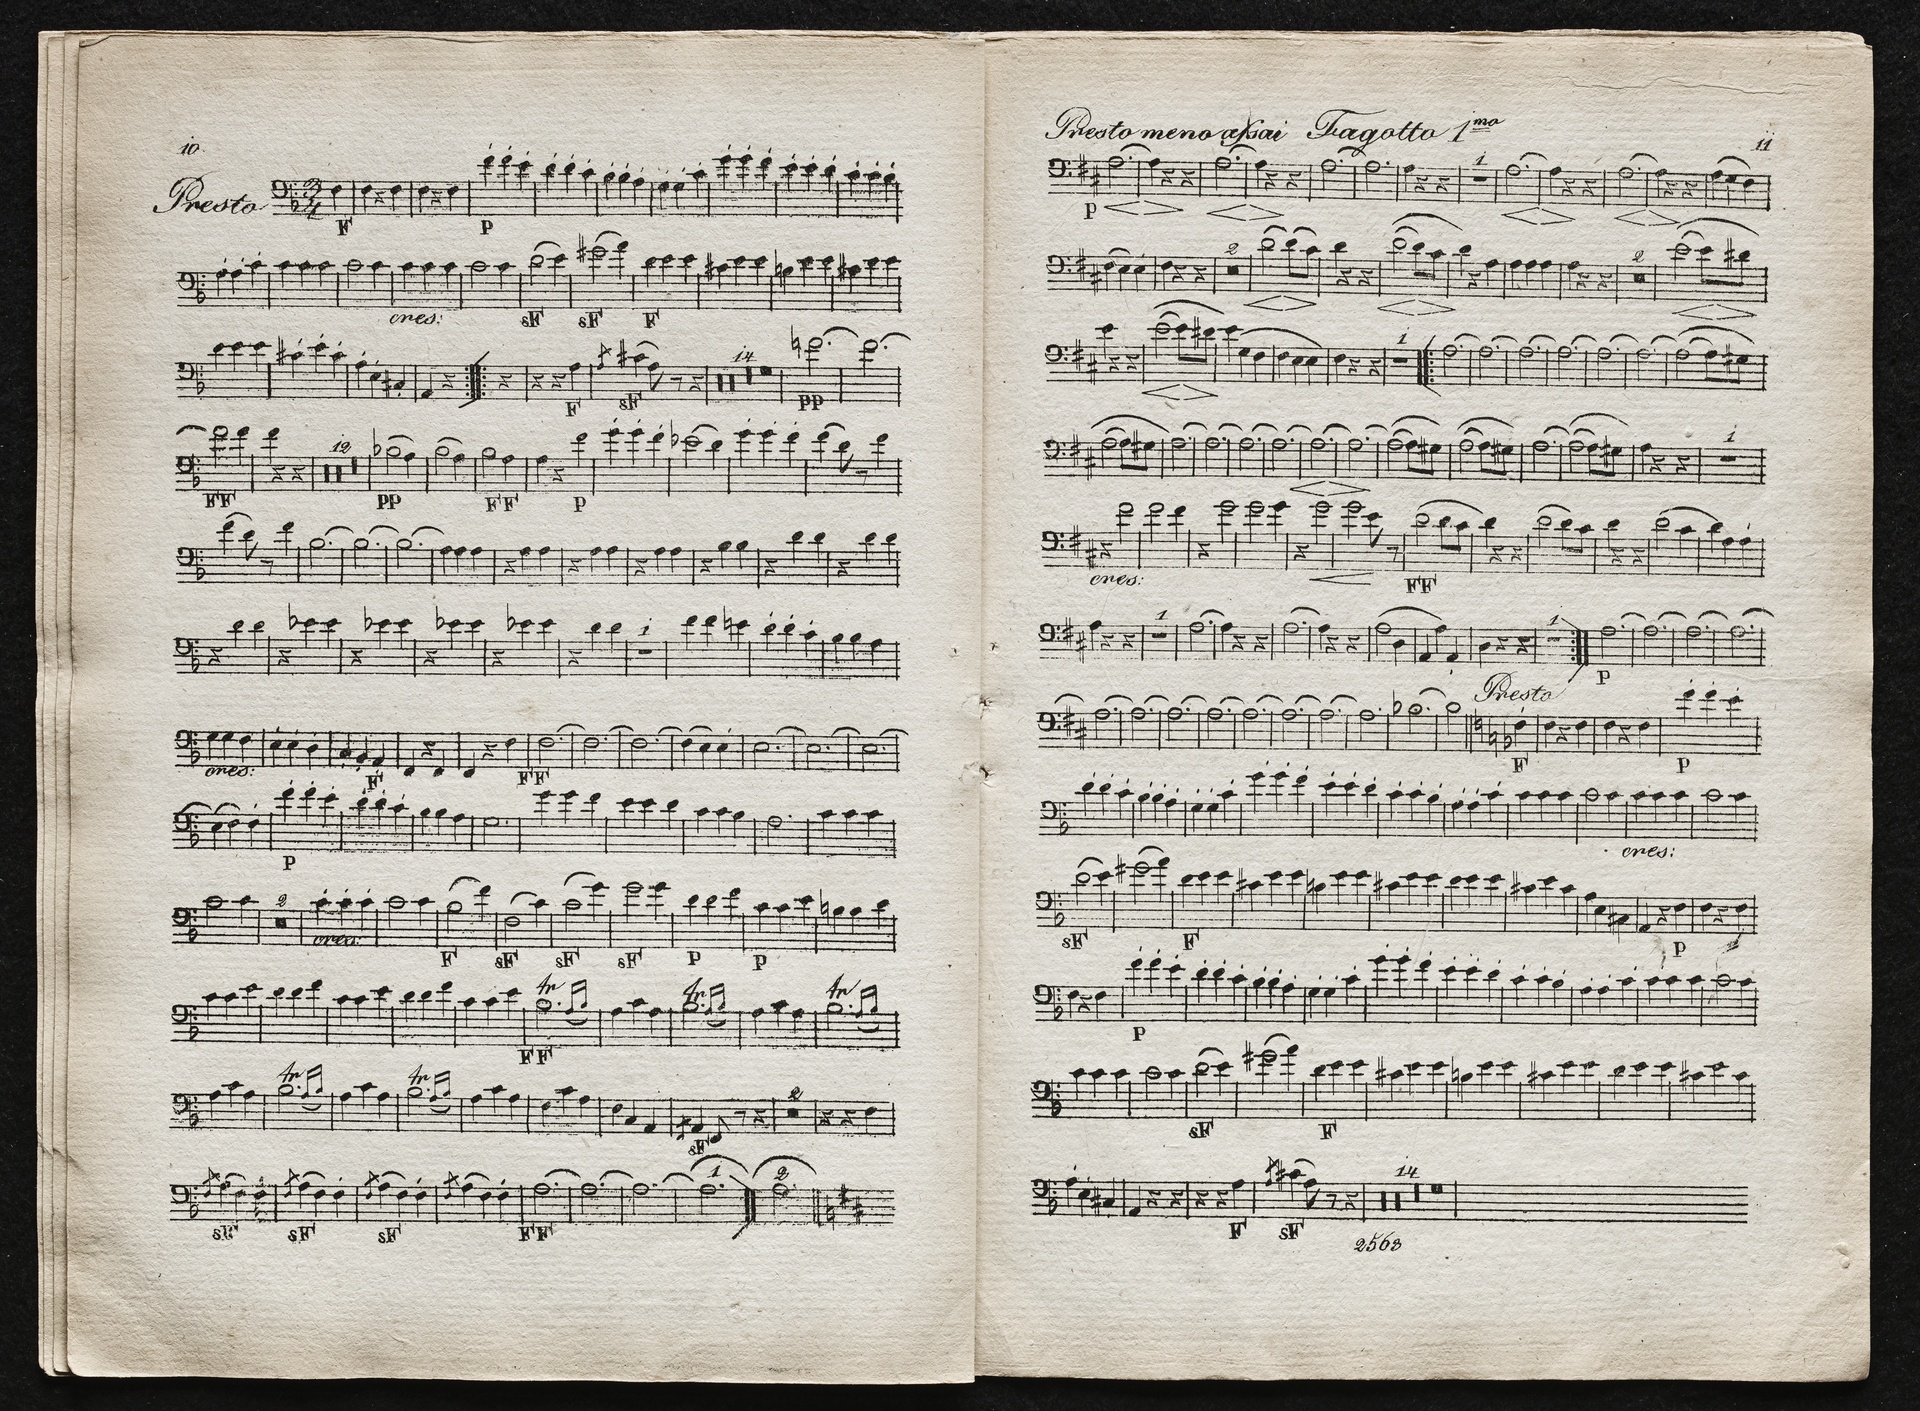 10.
Presto
3/4
F p
cres: sF sF F
14
F sF pp
12
FF pp FF p
1
cres: F FF
p
2
cres: F sF sF sF p p
tr tr tr
FF
tr tr 2
sF
1 2
sF sF sF FF
Presto meno assai Fagotto 1mo 11
1
p
2 2
1
1
cres: FF
1 1
p
Presto
F p
cres:
sF F p
p
sF F
14
F sF
2568